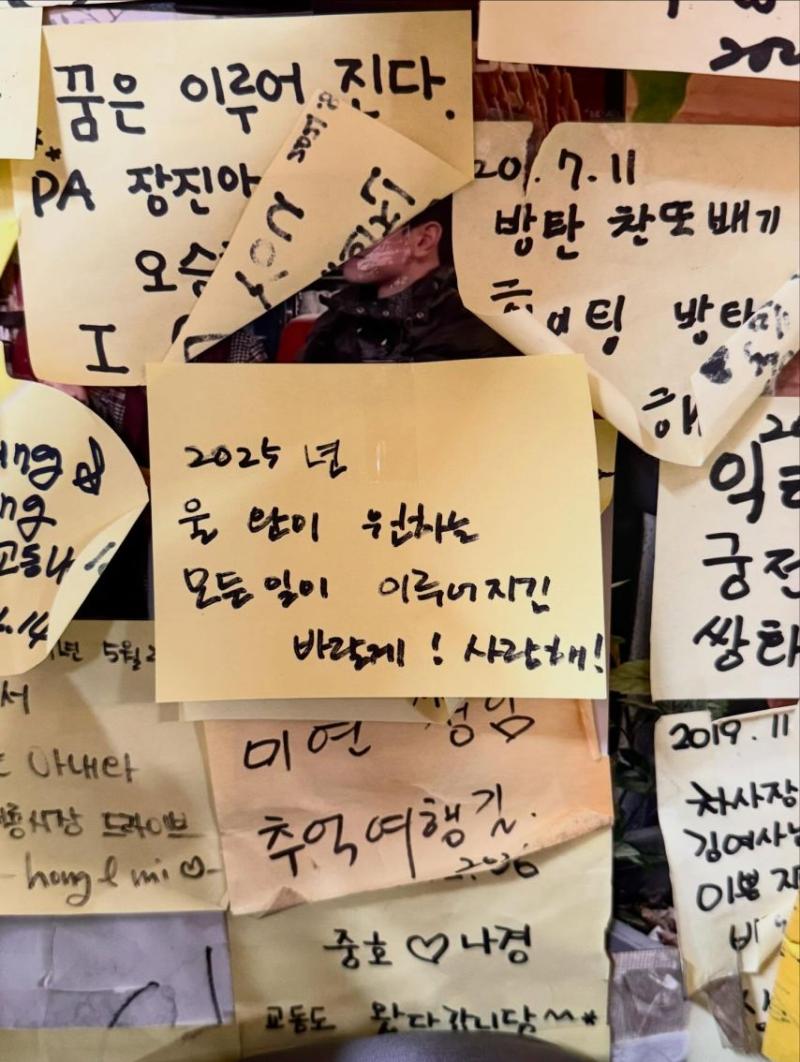 꿈은 이루어 진다.
PA 장진아
오승
I
NOT
202
20. 7. 11
방탄 찬또배기
팅 방탄
해
2025 년
울 완이 원하는
모든일이 이루어지긴
바랄께! 사랑해!
ng
교동
.14
년 5월 2
서
아내라
시장 드라이브
미연
추억여행길.
중호 ♡ 나경
교동도 왔다갑니담^^*
20
익
궁전
쌍화
2019. 11
차사장
김여사님
이쁘